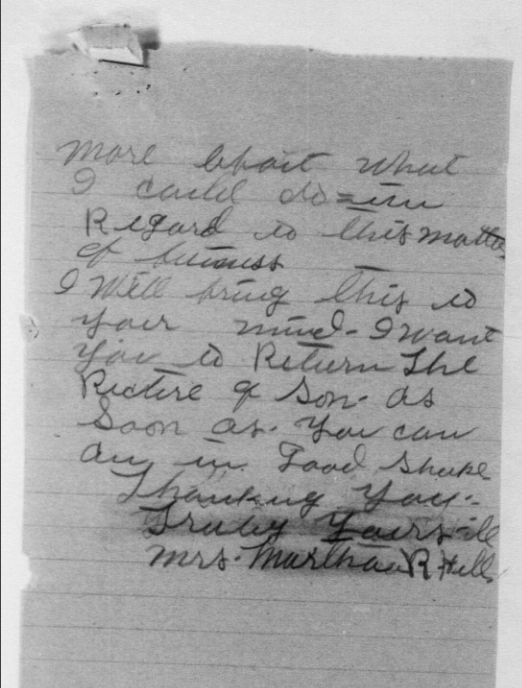 more about what
I could do - in
Regard to this matter
of business
I Will bring this to
your mind - I want
You to Return The
Picture of Son - as
Soon as - You can
an in Good Shape
Thanking You -
Truly Yours
Mrs. Martha R Hill